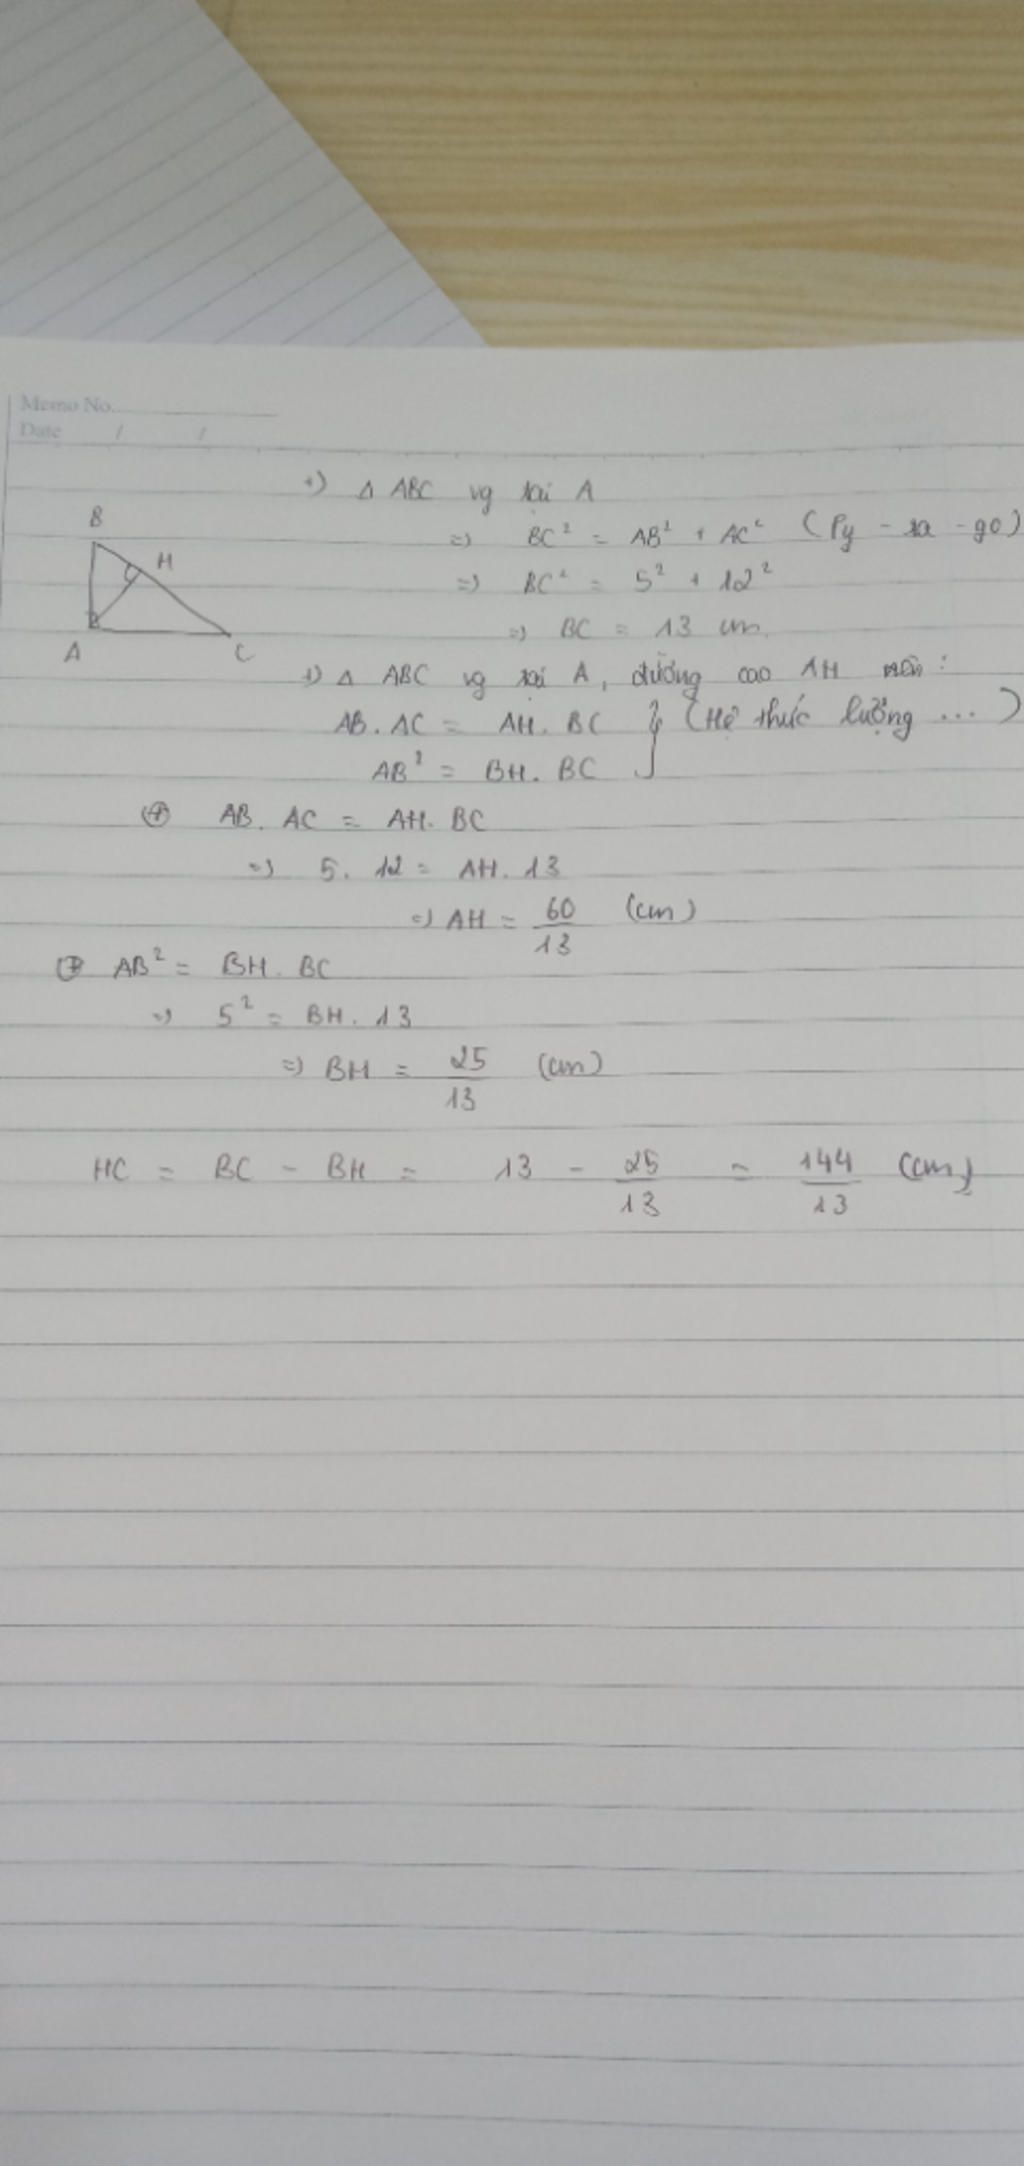 Memo No.
Date / /
+) Δ ABC vg tại A
=> BC² = AB² + AC² (Py - ta - go)
B
H
=> BC² = 5² + 12²
=> BC = 13 cm.
A C
+) Δ ABC vg tại A, đường cao AH nên:
AB. AC = AH. BC } (Hệ thức lượng ...)
AB² = BH. BC
⊕ AB. AC = AH. BC
=> 5. 12 = AH. 13
=> AH = 60/13 (cm)
⊕ AB² = BH. BC
=> 5² = BH. 13
=> BH = 25/13 (cm)
HC = BC - BH = 13 - 25/13 = 144/13 (cm)